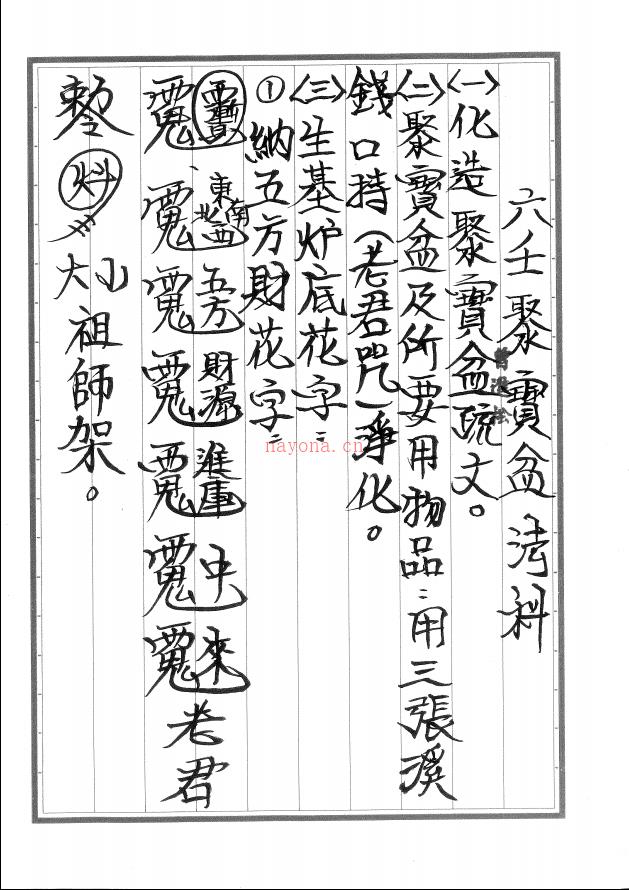 六壬聚寶盆法科
〈一〉化造聚寶盆疏文。
〈二〉聚寶盆及所要用物品：用三張溪
錢口持（老君咒）淨化。
〈三〉生基炉底花字：
① 納五方財花字：
東南西北五方財源進庫中來老君
勅
大小祖師架。
nayona.cn